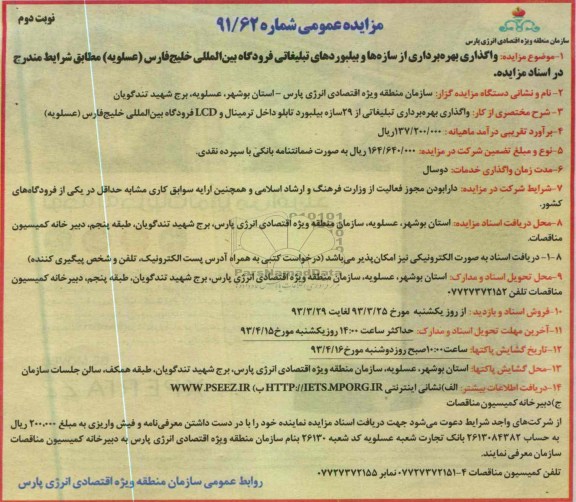 نوبت دوم
مزایده عمومی شماره ۹۱/۶۲
سازمان منطقه ویژه اقتصادی انرژی پارس
۱-موضوع مزایده: واگذاری بهره‌برداری از سازه‌ها و بیلبوردهای تبلیغاتی فرودگاه بین‌المللی خلیج‌فارس (عسلویه) مطابق شرایط مندرج
در اسناد مزایده.
۲- نام و نشانی دستگاه مزایده گزار: سازمان منطقه ویژه اقتصادی انرژی پارس -استان بوشهر، عسلویه، برج شهید تندگویان
۳- شرح مختصری از کار: واگذاری بهره‌برداری تبلیغاتی از ۲۹سازه بیلبورد تابلو داخل ترمینال و LCD فرودگاه بین‌المللی خلیج‌فارس (عسلویه)
۴-برآورد تقریبی درآمد ماهیانه : ۱۳۷/۲۰۰/۰۰۰ریال
۵-نوع و مبلغ تضمین شرکت در مزایده: ۱۶۴/۶۴۰/۰۰۰ ریال به صورت ضمانتنامه بانکی با سپرده نقدی.
۶-مدت زمان واگذاری خدمات: دوسال
۷-شرایط شرکت در مزایده: دارابودن مجوز فعالیت از وزارت فرهنگ و ارشاد اسلامی و همچنین ارایه سوابق کاری مشابه حداقل در یکی از فرودگاه‌های
کشور.
۸-محل دریافت اسناد مزایده: استان بوشهر، عسلویه، سازمان منطقه ویژه اقتصادی انرژی پارس، برج شهید تندگویان، طبقه پنجم، دبیر خانه کمیسیون
مناقصات.
۸-۱- دریافت اسناد به صورت الکترونیکی نیز امکان‌پذیر می‌باشد (درخواست کتبی به همراه آدرس پست الکترونیک، تلفن و شخص پیگیری کننده)
۹-محل تحویل اسناد و مدارک: استان بوشهر، عسلویه، سازمان منطقه ویژه اقتصادی انرژی پارس، برج شهید تندگویان، طبقه پنجم، دبیرخانه کمیسیون
مناقصات تلفن ۰۷۷۲۷۳۷۲۱۵۲
۱۰-فروش اسناد و بازدید : از روز یکشنبه مورخ ۹۳/۳/۲۵ لغایت ۹۳/۳/۲۹
۱۱-آخرین مهلت تحویل اسناد و مدارک: حداکثر ساعت ۱۴:۰۰ روز یکشنبه مورخ۹۳/۴/۱۵
۱۲-تاریخ گشایش پاکتها: ساعت۱۰:۰۰صبح روز دوشنبه مورخ۹۳/۴/۱۶
۱۳-محل گشایش پاکتها: استان بوشهر، عسلویه، سازمان منطقه ویژه اقتصادی انرژی پارس، برج شهید تندگویان، طبقه همکف، سالن جلسات سازمان
۱۴-دریافت اطلاعات بیشتر: الف)نشانی اینترنتی HTTP://IETS.MPORG.IR ب) WWW.PSEEZ.IR
ج)دبیرخانه کمیسیون مناقصات
از شرکت‌های واجد شرایط دعوت می‌شود جهت دریافت اسناد مزایده نماینده خود را با در دست داشتن معرفی‌نامه و فیش واریزی به مبلغ ۲۰۰.۰۰۰ ریال
به حساب ۲۶۱۳۰۸۴۳۸۲ بانک تجارت شعبه عسلویه کد شعبه ۲۶۱۳۰ بنام سازمان منطقه ویژه اقتصادی انرژی پارس به دبیرخانه کمیسیون مناقصات
سازمان معرفی نمایند.
تلفن کمیسیون مناقصات ۴-۰۷۷۲۷۳۷۲۱۵۱ نمابر ۰۷۷۲۷۳۷۲۱۵۵
روابط عمومی سازمان منطقه ویژه اقتصادی انرژی پارس